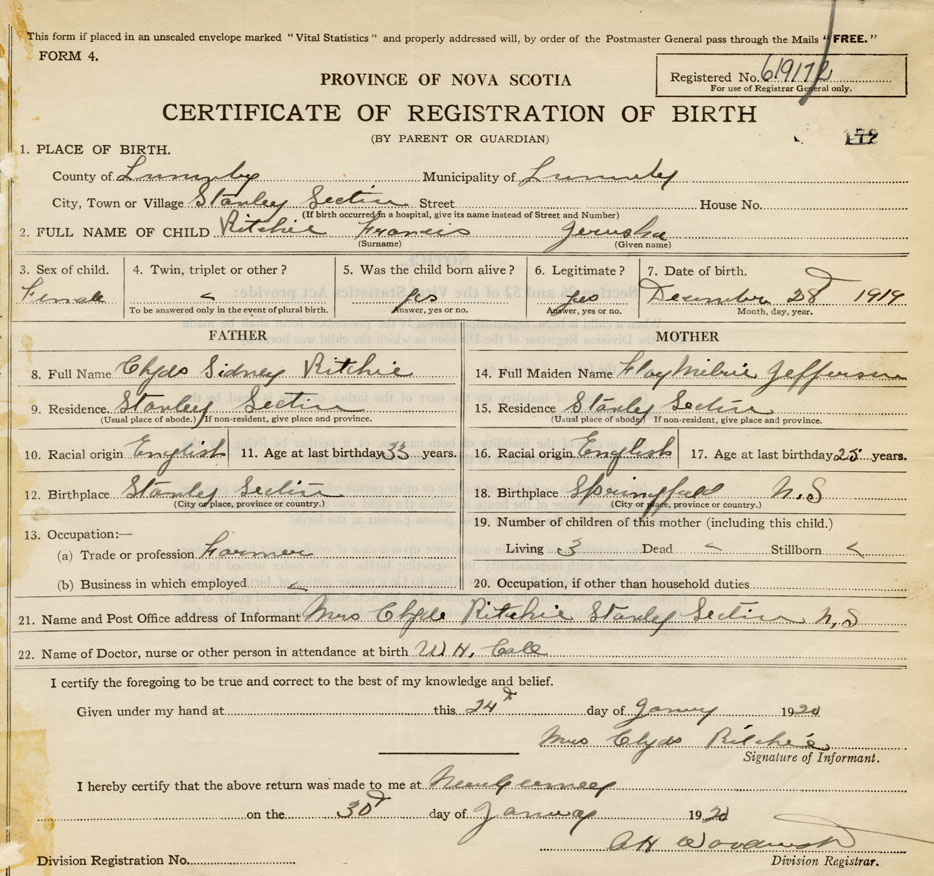 This form if placed in an unsealed envelope marked "Vital Statistics" and properly addressed will, by order of the Postmaster General pass through the Mails "FREE."
FORM 4.
Registered No. 619172
For use of Registrar General only.
PROVINCE OF NOVA SCOTIA
CERTIFICATE OF REGISTRATION OF BIRTH
(BY PARENT OR GUARDIAN)
1. PLACE OF BIRTH.
County of Municipality of
City, Town or Village Stanley Section Street House No.
(If birth occurred in a hospital, give its name instead of Street and Number)
2. FULL NAME OF CHILD Ritchie Francis Jerusha
(Surname) (Given name)
3. Sex of child. 4. Twin, triplet or other? 5. Was the child born alive? 6. Legitimate? 7. Date of birth.
Female yes yes December 28 1919
To be answered only in the event of plural birth. Answer, yes or no. Answer, yes or no. Month, day, year.
FATHER MOTHER
8. Full Name Clyde Sidney Ritchie 14. Full Maiden Name Jefferson
9. Residence. Stanley Section 15. Residence Stanley Section
(Usual place of abode.) If non-resident, give place and province. (Usual place of abode) If non-resident, give place and province.
10. Racial origin English 11. Age at last birthday 33 years. 16. Racial origin English 17. Age at last birthday 25 years.
12. Birthplace Stanley Section 18. Birthplace Springfield N.S
(City or place, province or country.) (City or place, province or country.)
13. Occupation:— 19. Number of children of this mother (including this child.)
(a) Trade or profession Farmer Living 3 Dead Stillborn
(b) Business in which employed 20. Occupation, if other than household duties
21. Name and Post Office address of Informant Mrs Clyde Ritchie Stanley Section N,S
22. Name of Doctor, nurse or other person in attendance at birth W H. Cole
I certify the foregoing to be true and correct to the best of my knowledge and belief.
Given under my hand at this 24 day of 1920
Mrs Clyde Ritchie
Signature of Informant.
I hereby certify that the above return was made to me at
on the 30 day of 1920
Division Registration No. Division Registrar.